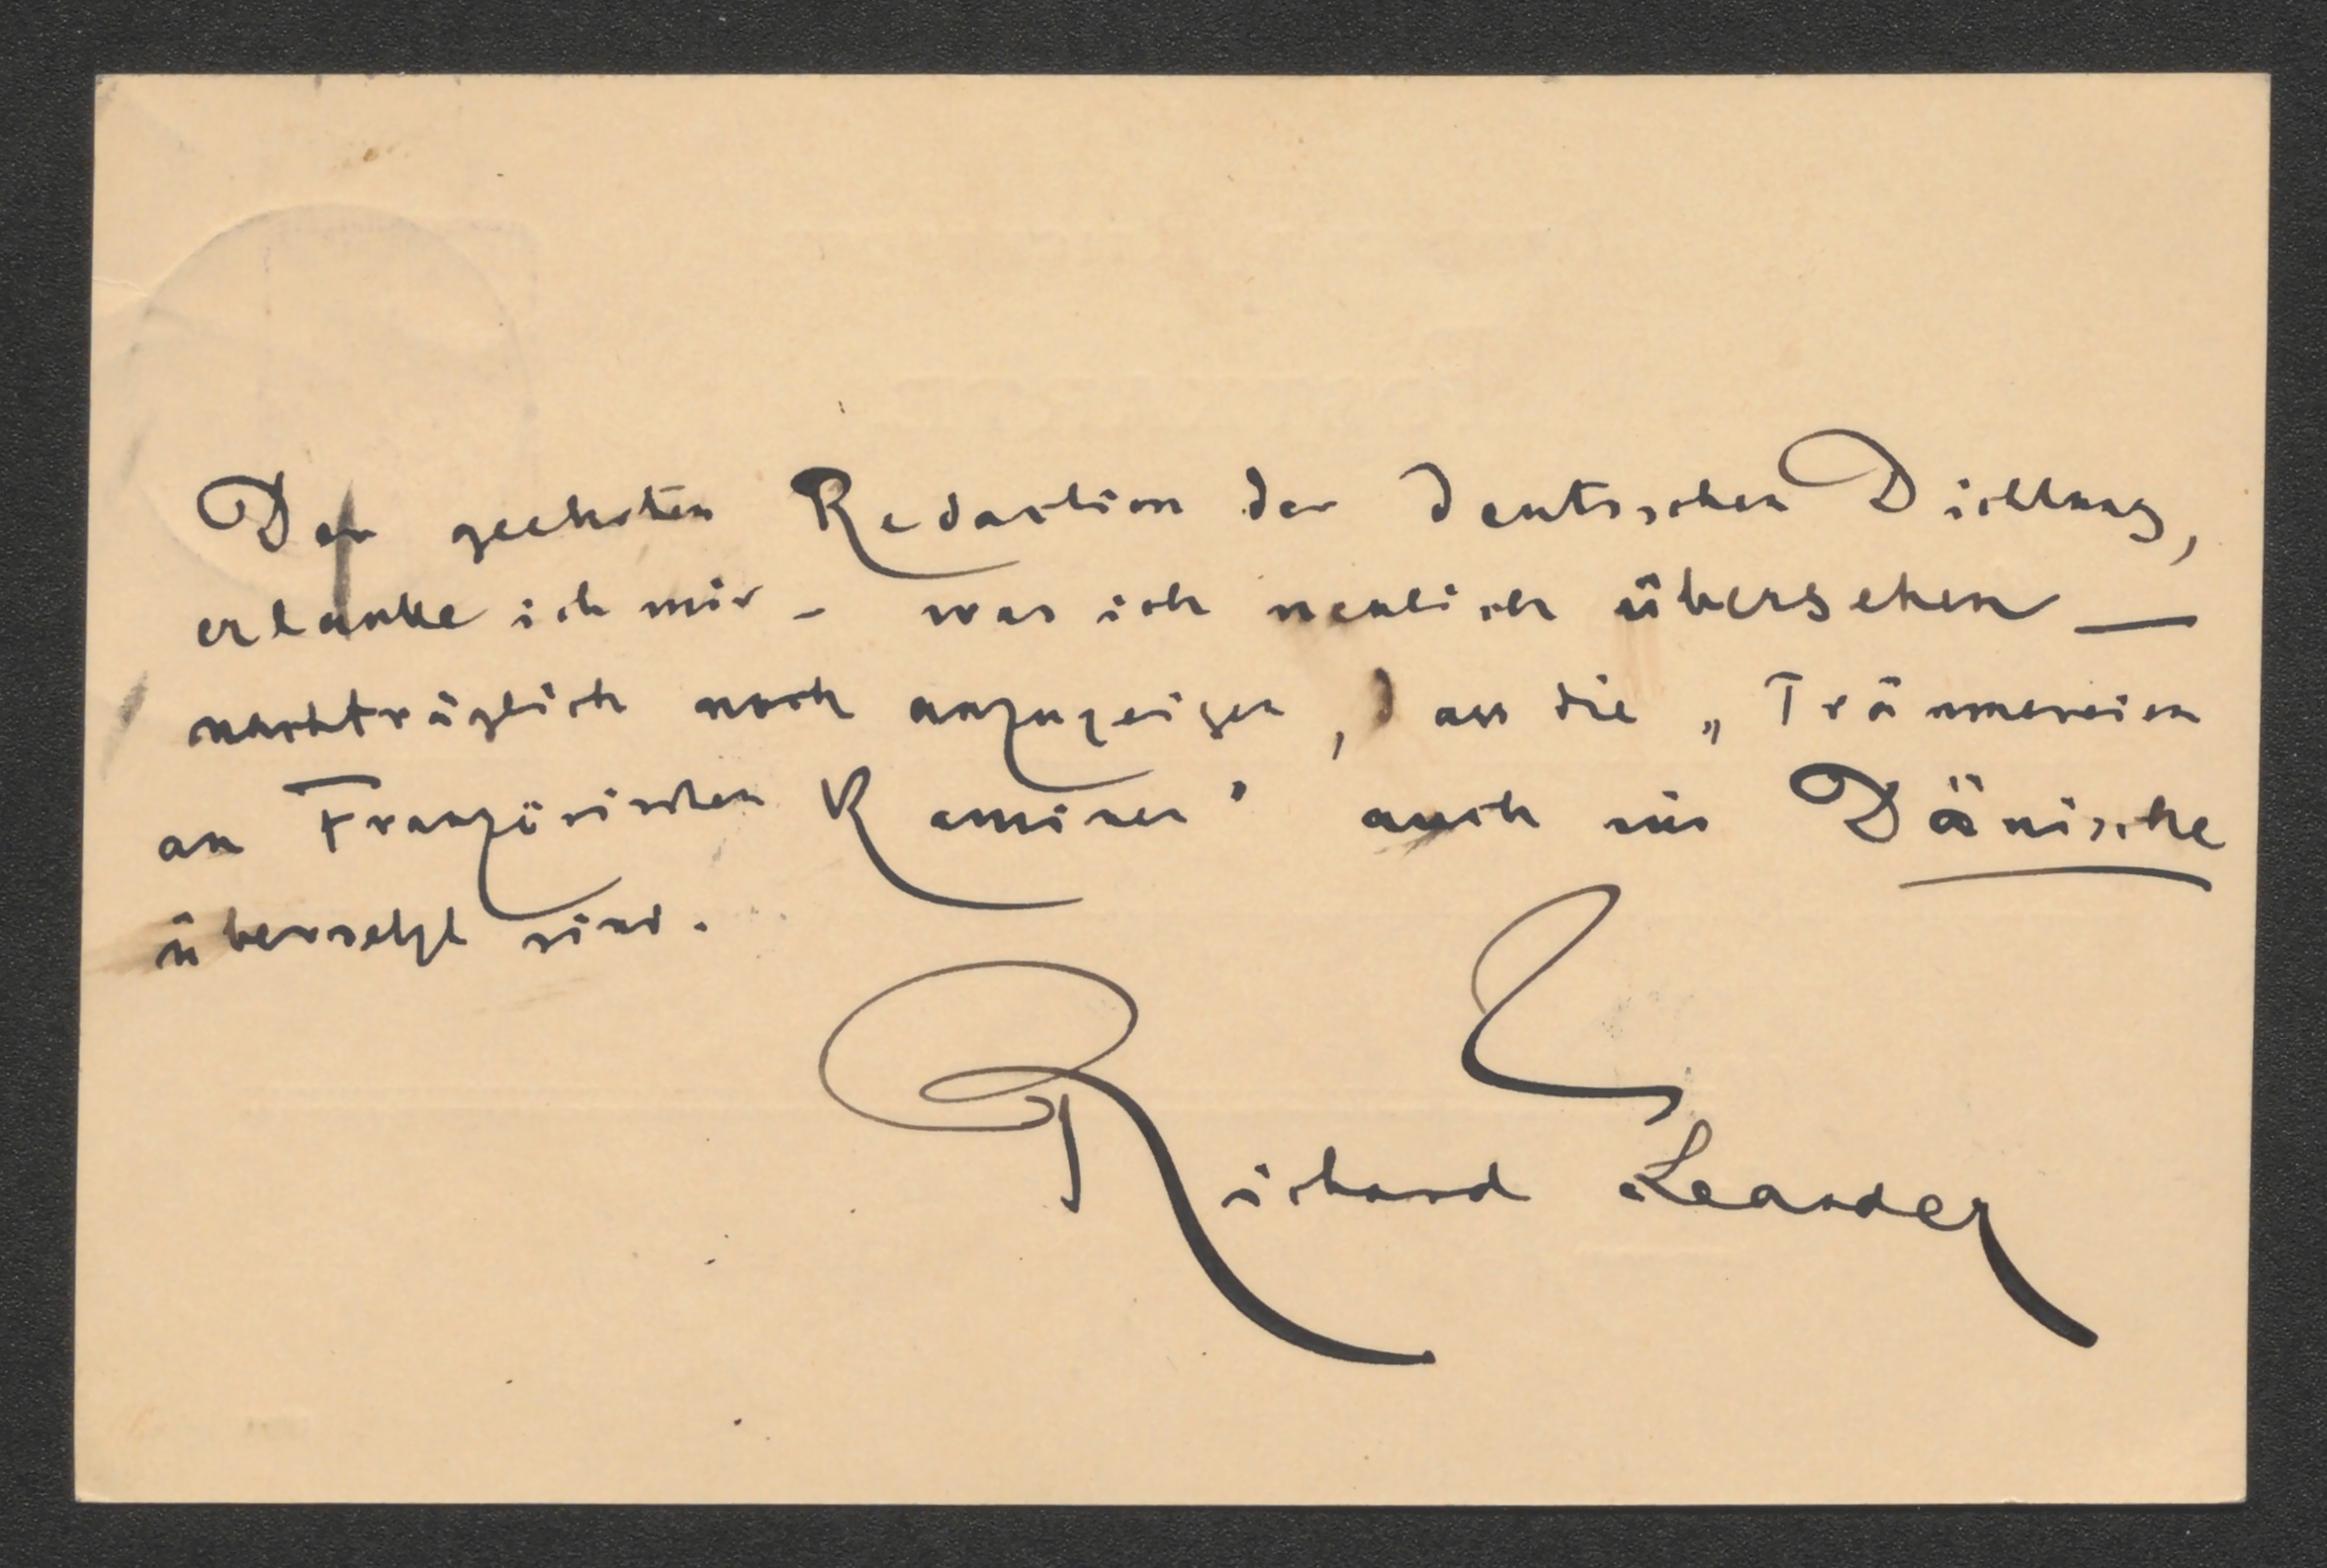 Der geehrten Redaction der deutschen Dichtung,
erlaube ich mir – was ich neulich übersehen –
nachträglich noch anzuzeigen, dass die „Träumereien
an Französischen Kaminen" auch ins Dänische
übersetzt sind.
Richard Leander